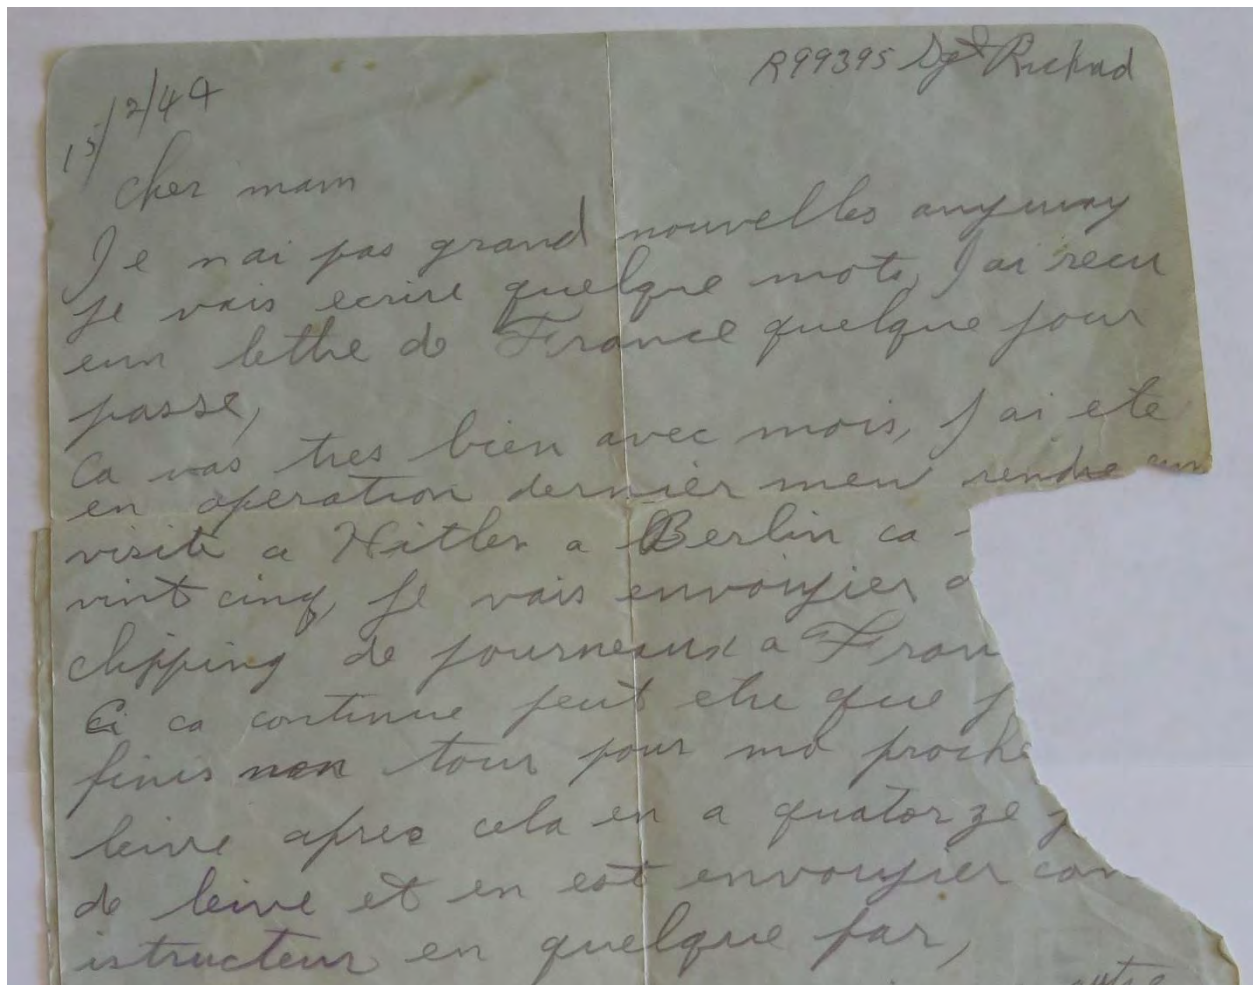 R99395 Sgt Richard
15/2/44
Cher mam
Je n ai pas grand nouvelles anyway
je vais ecrire quelque mots, J ai recu
eun lettre de France quelque jour
passe,
Ca vas tres bien avec mois, J ai ete
en operation dernierment rendre eun
visite a Hitler a Berlin ca
vint cinq, Je vais envoyier
clipping de journeaux a Fran
Ci ca continue peut etre que j
finis mon tour pour ma proche
leive apres cela en a quatorze
de leive et en est envoyier com
istructeur en quelque par,
autre